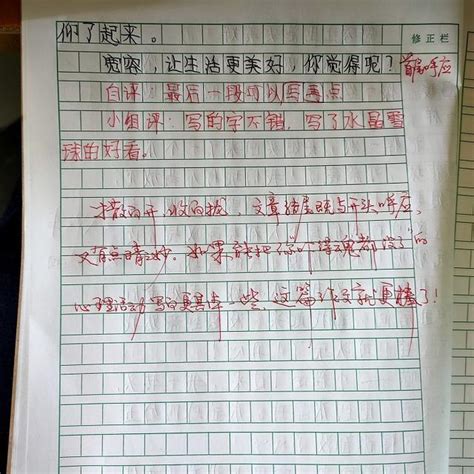 你了起来。
修正栏
宽容，让生活更美好，你觉得呢？
首尾呼应
自评：最后一段可以写
小组评：写的字不错，写了水晶雪
球的好看。
撒得开，收得拢，文章结尾既与开头呼应，
又有点睛之妙。如果能把你“吓得魂都没了”的
心理活动写得更具体一些，这篇作文就更棒了！